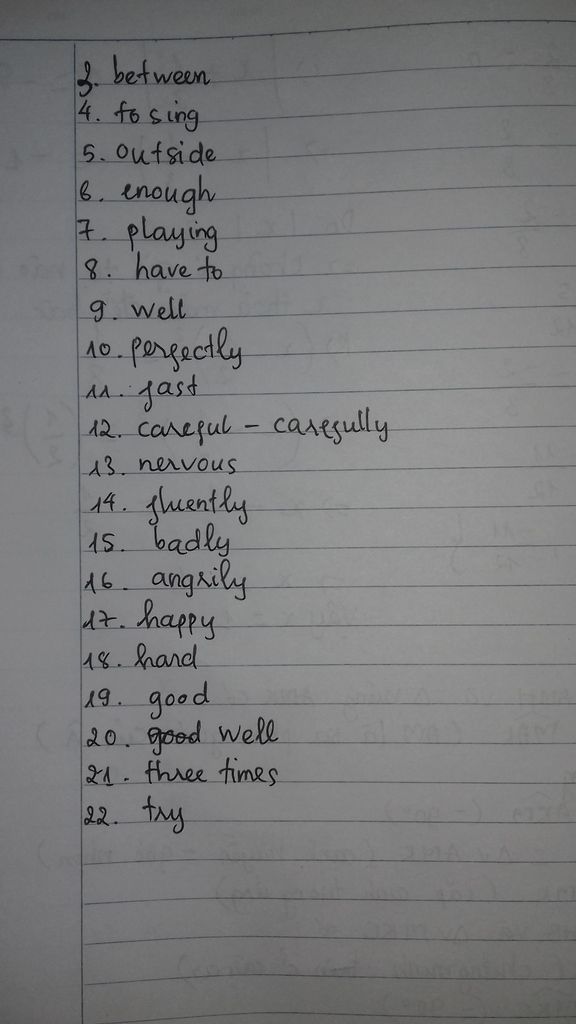 3. between
4. to sing
5. outside
6. enough
7. playing
8. have to
9. well
10. perfectly
11. fast
12. careful - carefully
13. nervous
14. fluently
15. badly
16. angrily
17. happy
18. hard
19. good
20. good well
21. three times
22. try